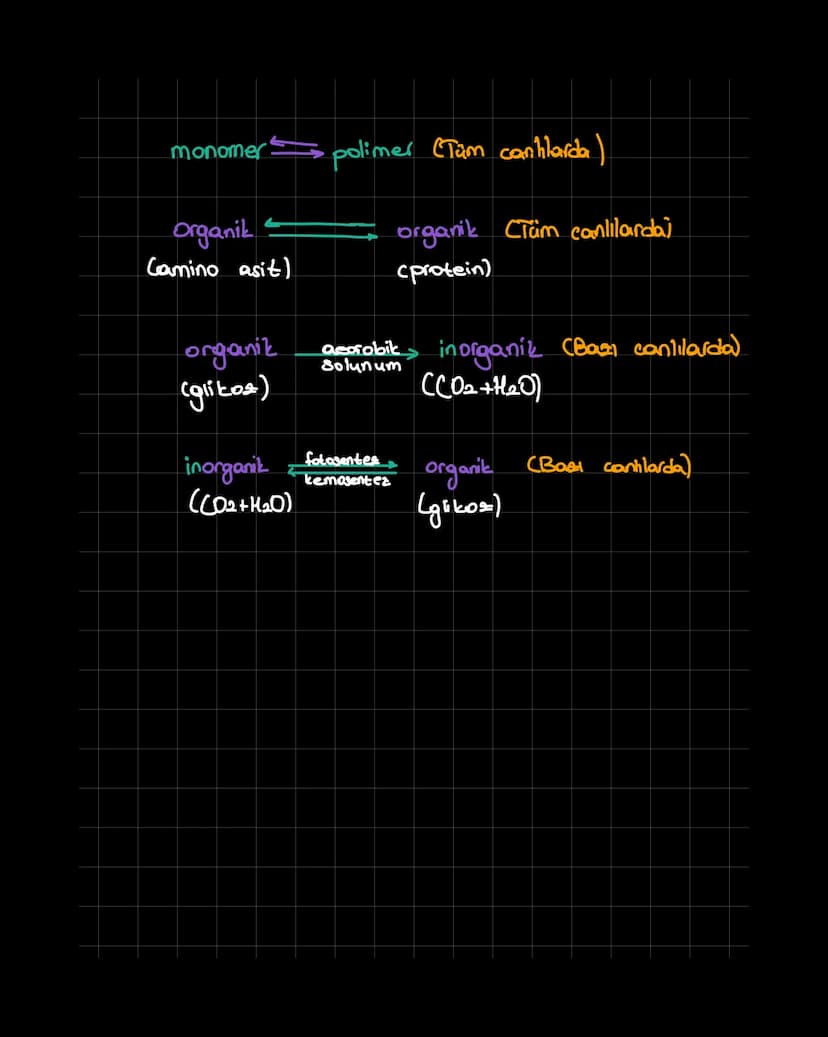 monomer ⇌ polimer (Tüm canlılarda)
Organik ⇌ organik (Tüm canlılarda)
(amino asit) (protein)
organik aerobik solunum → inorganik (Bazı canlılarda)
(glikoz) (CO2+H2O)
inorganik fotosentez ⇌ kemosentez organik (Bazı canlılarda)
(CO2+H2O) (glikoz)